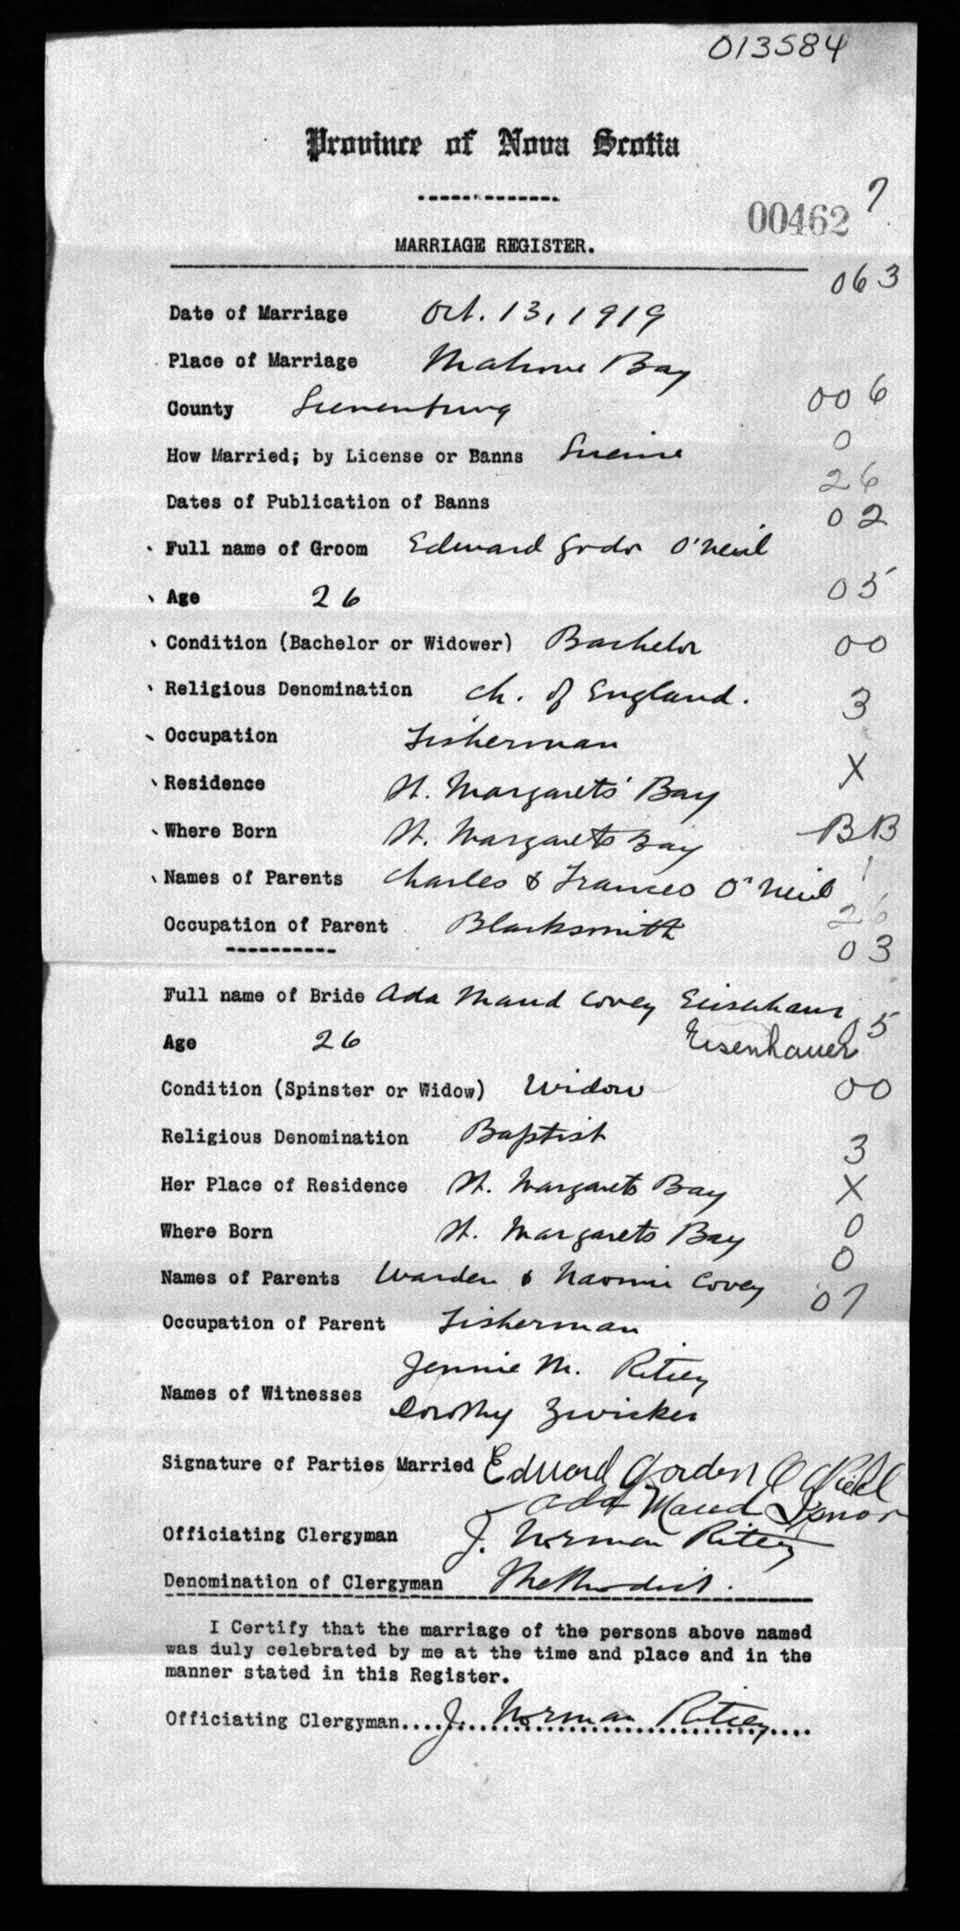 013584
Province of Nova Scotia
7
00462
MARRIAGE REGISTER.
063
Date of Marriage Oct. 13, 1919
Place of Marriage Mahone Bay
County Lunenburg 006
How Married; by License or Banns License 0
26
Dates of Publication of Banns 02
Full name of Groom Edward Gordon O'Neil
Age 26 05
Condition (Bachelor or Widower) Bachelor 00
Religious Denomination Ch. of England. 3
Occupation Fisherman
Residence St. Margarets Bay X
Where Born St. Margarets Bay BB
Names of Parents Charles & Frances O'Neil 1
26
Occupation of Parent Blacksmith 03
Full name of Bride Ada Maud Covey Eisenhaur
Age 26 Eisenhauer 05
Condition (Spinster or Widow) Widow 00
Religious Denomination Baptist 3
Her Place of Residence St. Margarets Bay X
Where Born St. Margarets Bay 0
0
Names of Parents Warden & Naomi Covey 07
Occupation of Parent Fisherman
Jennie M. Ritcey
Names of Witnesses
Dorothy Zwicker
Signature of Parties Married Edward Gorden
Ada Maud
Officiating Clergyman J. Norman Ritcey
Denomination of Clergyman Methodist.
I Certify that the marriage of the persons above named
was duly celebrated by me at the time and place and in the
manner stated in this Register.
Officiating Clergyman.... J. Norman Ritcey